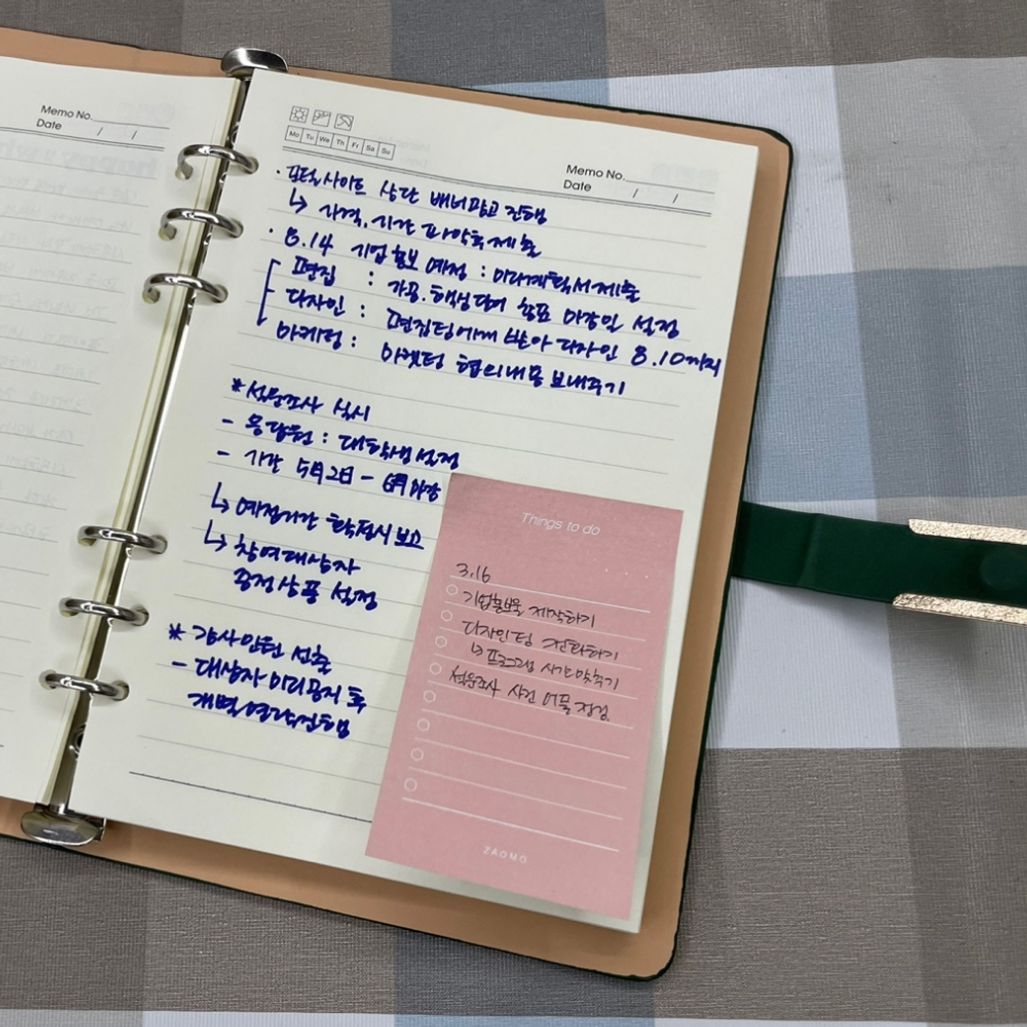 Memo No.
Date / /
Mo Tu We Th Fr Sa Su
Memo No.
Date / /
· 포털사이트 상단 배너광고 진행
↳ 가격, 시간 파악후 제출
· 8.14 기업홍보 예정 : 미리계획서제출
편집 : 가공. 합성하여 홍보 마감일 설정
디자인 : 편집팅에게 받아 디자인 8.10까지
마케팅 : 마켓팅 협의내용 보내주기
*설문조사 실시
- 응답원 : 대학생설정
- 기간 5月2日 - 6月마감
↳ 예정기간 확정시 보고
↳ 참여대상자
증정상품 설정
* 감사인원 선출
- 대상자 미리공지 후
개별연락진행
Things to do
3.16
기업홍보물 제작하기
디자인팅 전화하기
↳ 프로그램 시간맞추기
설문조사 사건
ZAOMO